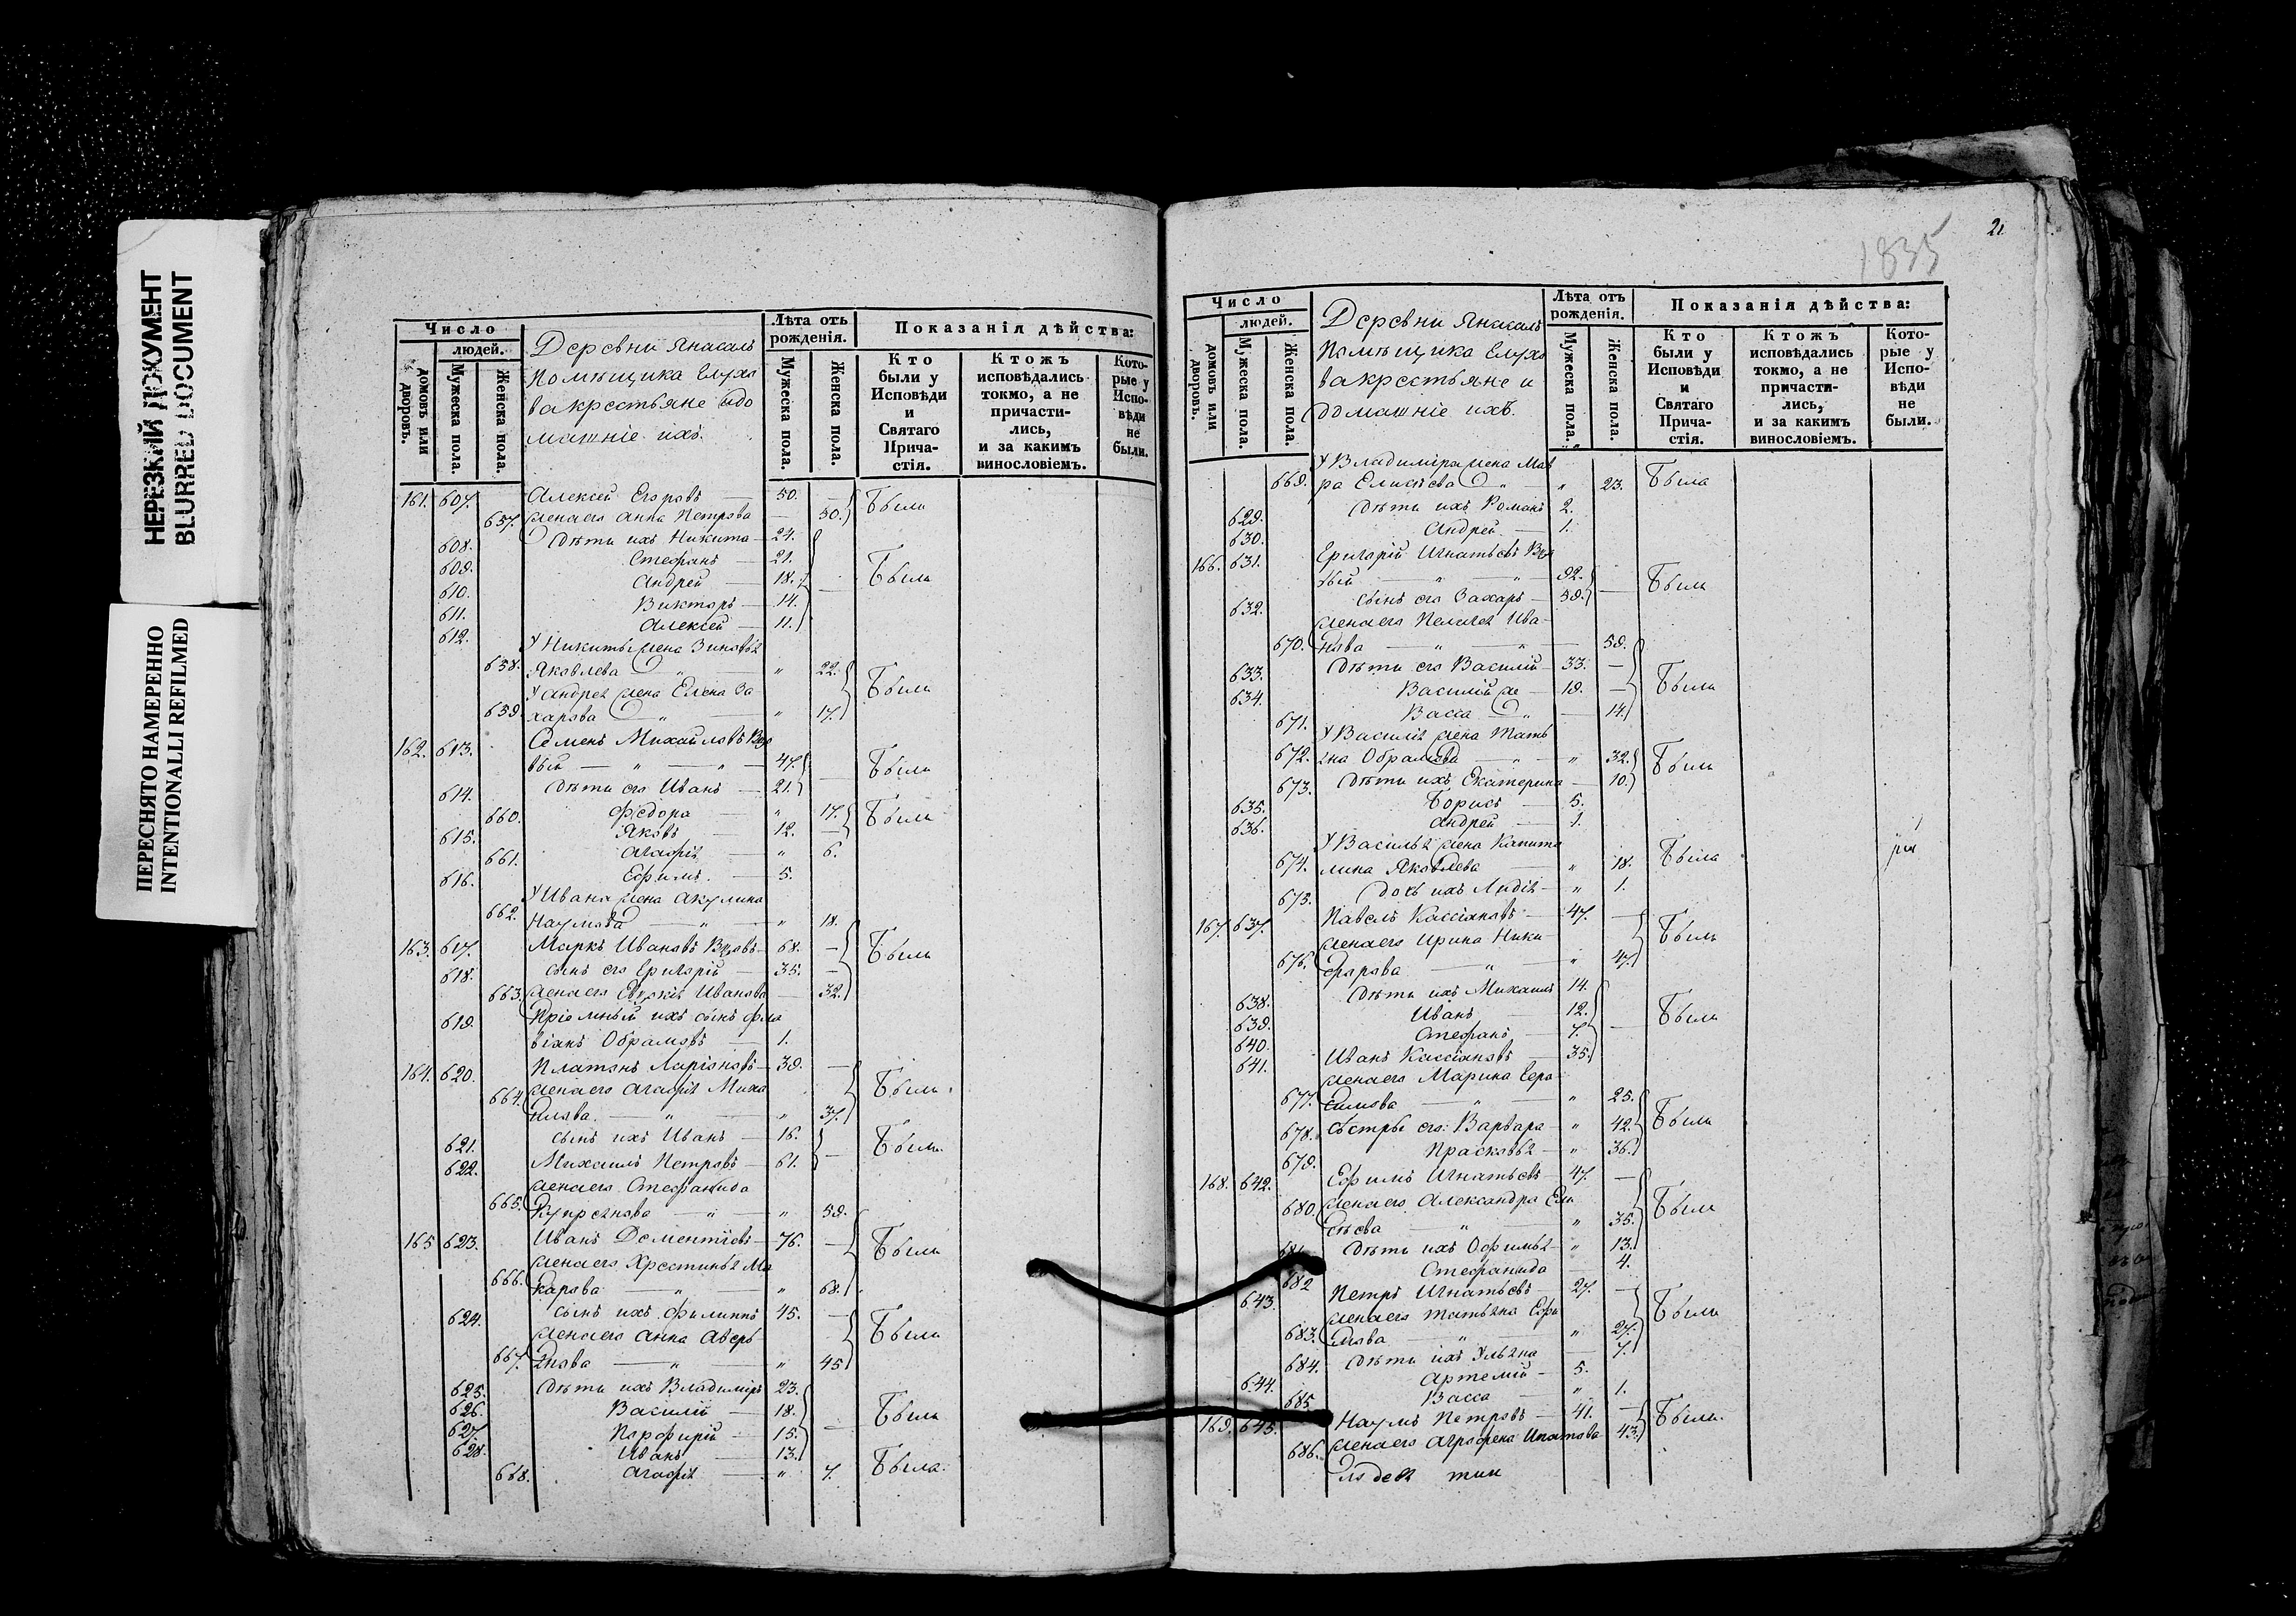 НЕРЕЗКИЙ ДОКУМЕНТ
BLURRED DOCUMENT
ПЕРЕСНЯТО НАМЕРЕННО
INTENTIONALLI REFILMED
Число
людей.
домовъ или дворовъ.
Мужеска пола.
Женска пола.
Деревни Янасаль
Помѣщика Елухо
ва крестьяне и до
машніе ихъ.
Лѣта отъ рожденія.
Мужеска пола.
Женска пола.
Показанія дѣйства:
Кто были у Исповѣди и Святаго Прича-стія.
Ктожъ исповѣдались токмо, а не причасти-лись, и за какимъ винословіемъ.
Кото-рые у Испо-вѣди не были.
161. 607. Алексѣй Егоровъ — 50. Были
657. жена его Анна Петрова — 50.
608. Дѣти ихъ Никита — 24.
609. Стефанъ — 21.
610. Андрей — 18. Были
611. Викторъ — 14.
612. Алексѣй — 11.
У Никиты жена Зиновья
658. Яковлева — " — " 22.
У Андрея жена Елена За Были
659. харова — " — " 17.
162. 613. Семенъ Михайловъ Вдо
вый — " — " — 47. Были
614. Дѣти его Иванъ — 21.
660. Федора — " 17. Были
615. Яковъ — 12. —
661. Агафія — " 6.
616. Ефимъ — 5.
У Ивана жена Акулина
662. Наумова — " — " 18.
163. 617. Маркъ Ивановъ Вдовъ — 68. — Были
618. сынъ его Григорій — 35. —
663. жена его Евдокія Иванова — 32.
619. Пріемный ихъ сынъ Фла
віанъ Обрамовъ — 1.
164. 620. Платонъ Ларіоновъ — 39. —
664. жена его Агафія Миха Были
илова — " — " 37.
621. сынъ ихъ Иванъ — 16. Были
622. Михаилъ Петровъ — 61. —
жена его Стефанида
665. Купреянова — " — " 59.
165 623. Иванъ Дементіевъ — 76. — Были
жена его Христинья Ма
666. карова — " — " 68.
624. сынъ ихъ Филиппъ 45. —
жена его Анна Аверь Были
667. янова — " — " 45
625. Дѣти ихъ Владиміръ 23.
626. Василій — 18. Были
627. Порфирій — 15. —
628. Иванъ — 13.
668. Агафія — " 7. Была.
1835
21
Число
людей.
домовъ или дворовъ.
Мужеска пола.
Женска пола.
Деревни Янасаль
Помѣщика Елухо
ва крестьяне и
домашніе ихъ.
Лѣта отъ рожденія.
Мужеска пола.
Женска пола.
Показанія дѣйства:
Кто были у Исповѣди и Святаго Прича-стія.
Ктожъ исповѣдались токмо, а не причасти-лись, и за какимъ винословіемъ.
Кото-рые у Испо-вѣди не были.
У Владиміра жена Мав
669. ра Елисѣева — " — " 23. Была
629. Дѣти ихъ Романъ 2.
630. Андрей — 1.
166. 631. Григорій Игнатьевъ Вдо
вый — " — " — 92. Были
632. сынъ его Захаръ — 59. —
жена его Пелагея Ива
670. нова — " — " — 59.
633. Дѣти его Василій — 33. —
634. Василій же — 19. — Были
671. Васса — " — 14.
У Василія жена Тать
672. яна Обрамова — " — " 32. Были
673. Дѣти ихъ Екатерина — 10.
635. Борисъ — 5.
636. Андрей — 1.
У Василья жена Капито
674. лина Яковлева " 18. Была
673. дочь ихъ Лидія — " 1.
167. 637. Павелъ Кассіановъ — 47. —
жена его Ирина Ники Были
676. форова — " — " 47.
638. Дѣти ихъ Михаилъ 14.
639. Иванъ — 12. Были
640. Стефанъ — 7. —
641. Иванъ Кассіановъ — 35.
жена его Марина Гера
677. симова — " — " 25.
678. Сестры его: Варвара — " 42. Были
679. Прасковья — " 36.
168. 642. Ефимъ Игнатьевъ — 47. —
680. жена его Александра Ели Были
сѣева — " — " 35.
681. Дѣти ихъ Офимья — " 13.
682 Стефанида — 4.
643. Петръ Игнатьевъ — 27. —
жена его Татьяна Ефи Были
683. мова — " — " 27.
684. Дѣти ихъ Ульяна — 7.
644. Артемій — 5.
685 Васса — " 1.
169. 645. Наумъ Петровъ — 41. — Были.
686. жена его Аграфена Ипатова 43.